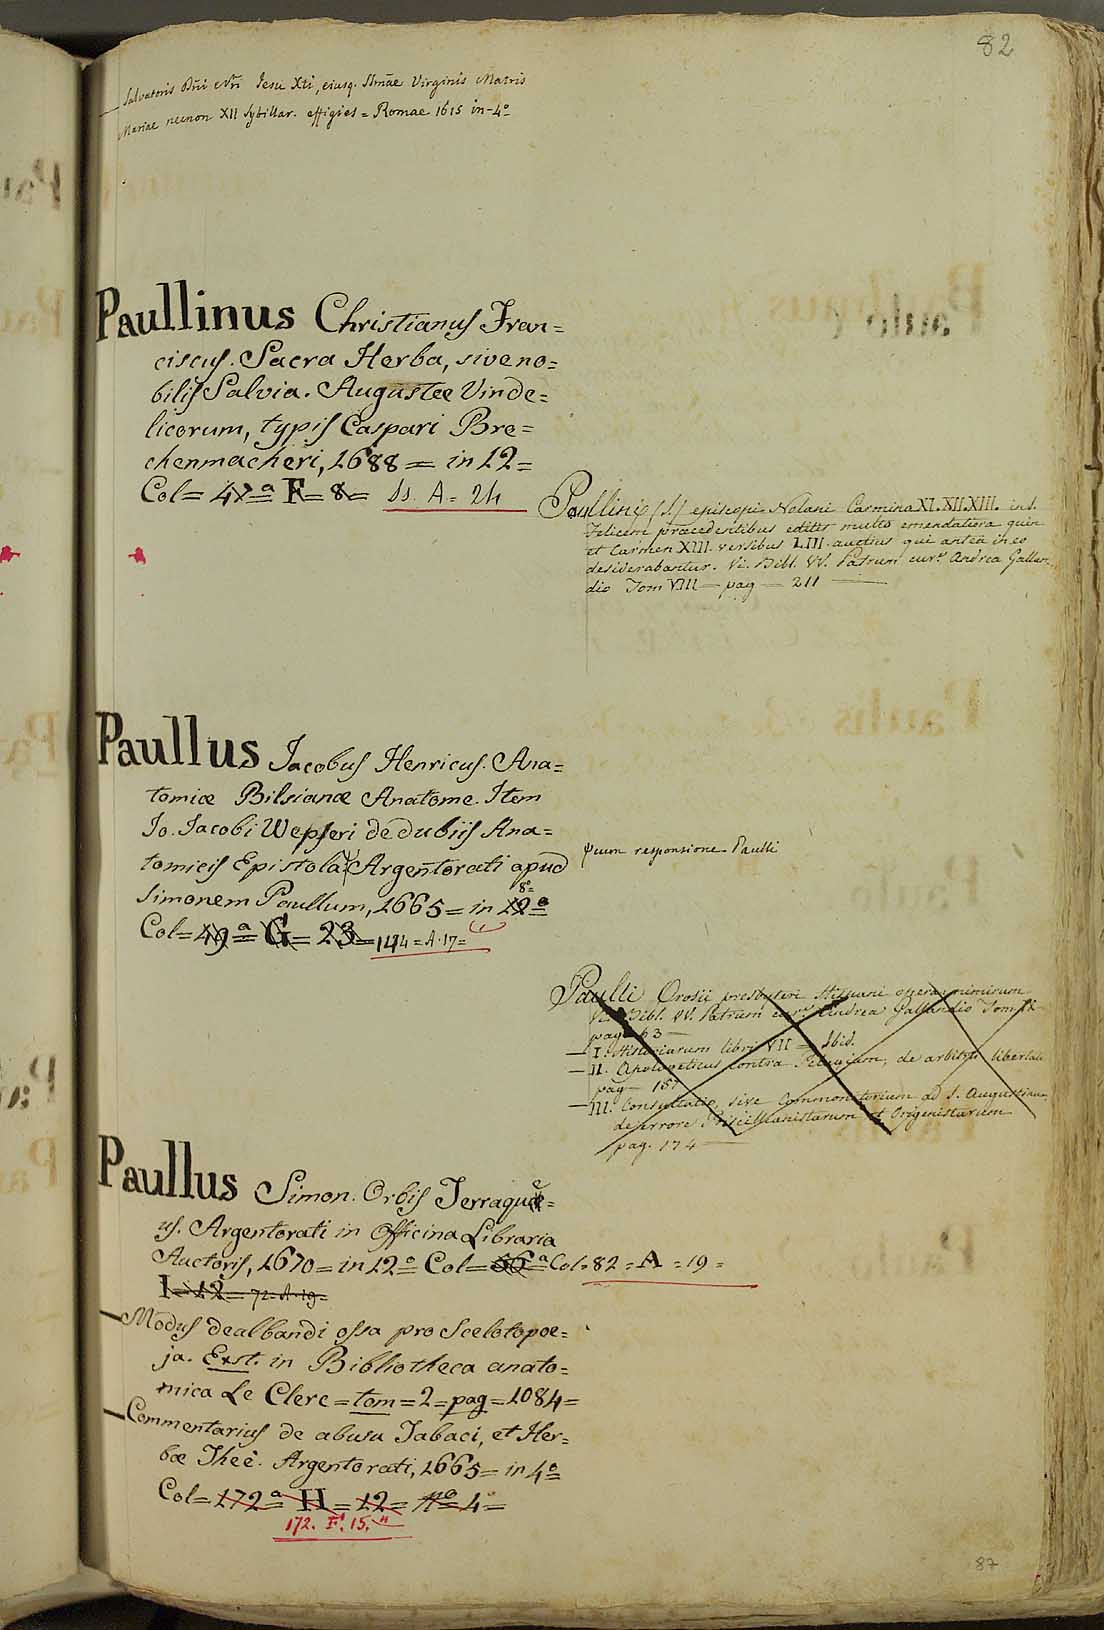 82
Salvatoris Dñi Nri Iesu Xti, eiusq. Smae Virginis Matris
Mariae necnon XII Sybillar. effigies = Romae 1615 in-4º
Paullinus Christianus Fran=
ciscus. Sacra Herba, sive no=
bilis Salvia. Augustae Vinde=
licorum, typis Caspari Bre=
chenmacheri, 1688 = in 12 =
Col = 47ª = F = 8 = 11. A = 24
Paullini (S.) episcopi Nolani Carmina XI. XII. XIII. in S.
Felicem praecedentibus editis multo emendatiora quin
et Carmen XIII. versibus LIII. auctius qui antea in eo
desiderabantur. Vi. Bibl. VV. Patrum cur.e Andrea Gallan=
dio Tom VIII — pag — 211 —
Paullus Jacobus Henricus. Ana=
tomiae Bilsianae Anatome. Item
Jo. Jacobi Wepferi de dubiis Ana=
tomicis Epistola Argentorati apud
Simonem Paullum, 1665 = in 12ª 8º=
cum responsione Paulli
Col = 49ª = G = 23 = 144 = A. 17 =
Paulli Orosii presbyteri Hispani opera nimirum
Vi. Bibl. VV. Patrum cur.e Andrea Gallandio Tom IX
pag — 63 —
— I. Historiarum libri VII — Ibid.
— II. Apologeticus contra Pelagium, de arbitrii libertate
pag — 157
— III. Consultatio, sive Commonitorium ad S. Augustinum
de errore Priscillianistarum et Origenistarum
pag. 174 —
Paullus Simon. Orbis Terraque=
us. Argentorati in Officina Libraria
Auctoris, 1670 = in 12º = Col = 56ª = Col. 82 = A = 19 =
I = 12 = 72 = A. 19 =
— Modus dealbandi ossa pro Scelotopoe=
ja. Exst. in Bibliotheca anato=
mica Le Clerc = tom = 2 = pag = 1084 =
— Commentarius de abusu Tabaci, et Her=
bae Theê. Argentorati, 1665 = in 4º =
Col = 172ª = H = 12 = nº = 4 =
172. F. 15. "
87